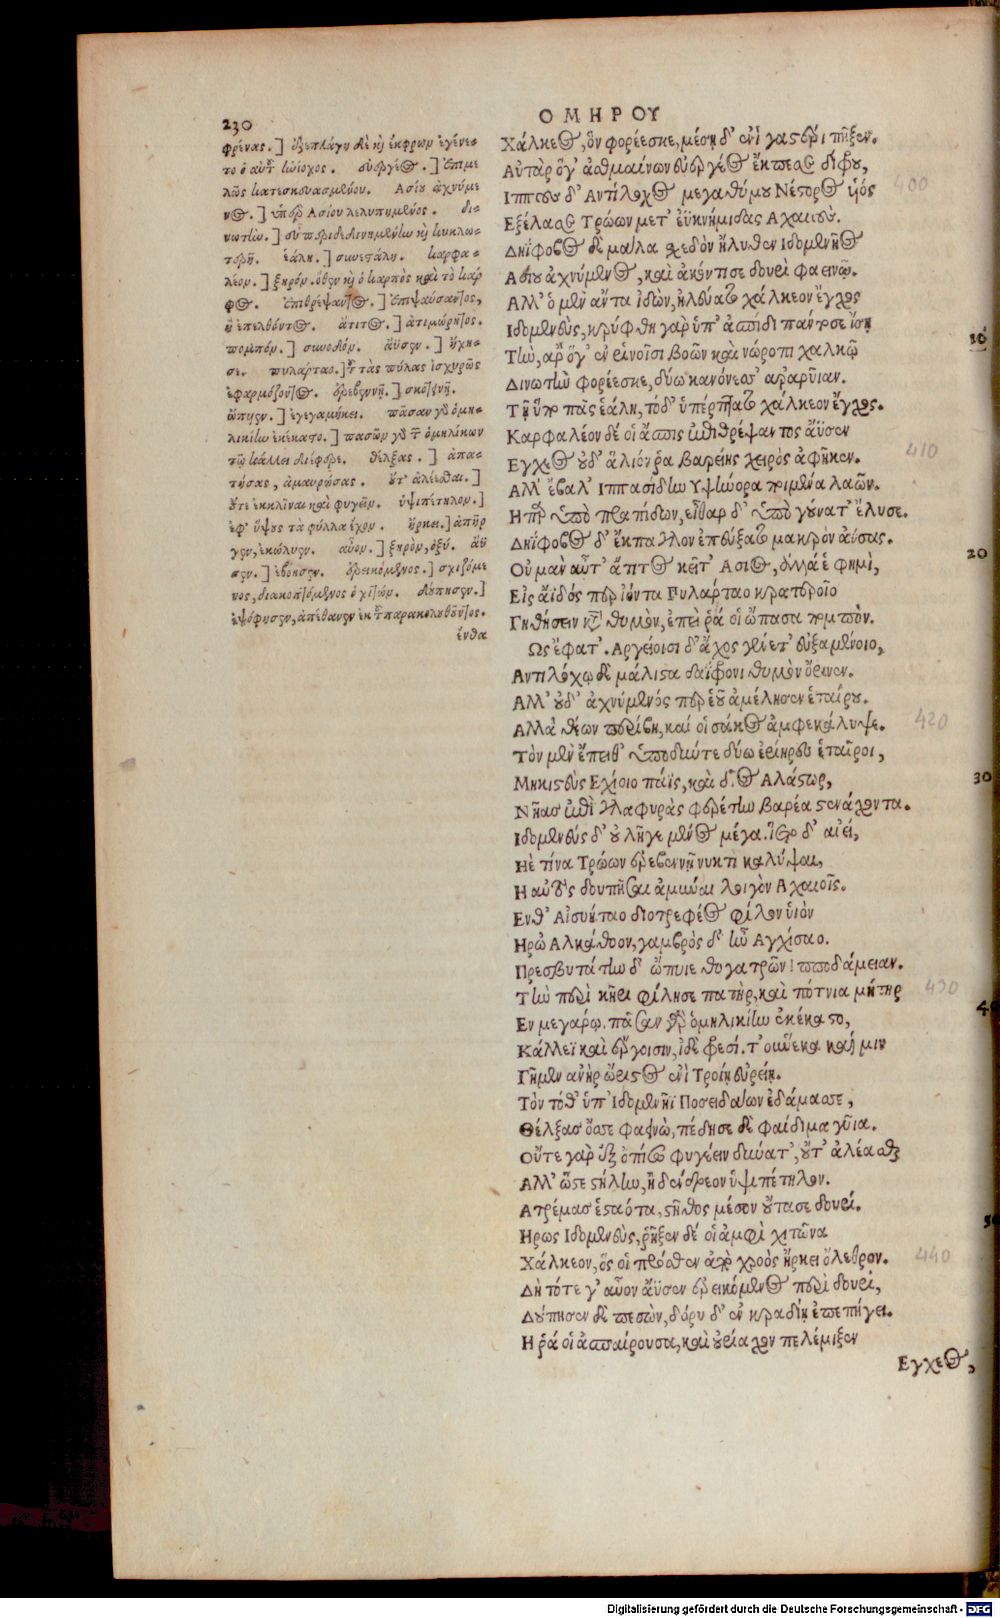 230
ΟΜΗΡΟΥ
φρένας.] ἐξεπλάγη δὲ καὶ ἔκφρων ἐγένε-
το ὁ αὐτοῦ ἡνίοχος. εὐεργέος.] ἐπιμε
λῶς κατεσκευασμένου. Ασίου ἀχνύμε
νος.] ὑπὲρ Ασίου λελυπημένος. δι-
νωτὴν.] οὖν περιδεδινημένην καὶ κυκλω-
τερῆ. ἐάλη.] συνεστάλη. καρφα-
λέον.] ξηρόν. ὅθεν καὶ ὁ καρπὸς καὶ τὸ κάρ
φος. ἐπιθρέψαντος.] ἐπιψαύσαντος,
ἢ ἐπελθόντος. ἄτιτος.] ἀτιμώρητος.
πομπόν.] συνοδόν. ἄϋσεν.] ἤχη-
σε. πυλάρταο.] τοῦ τὰς πύλας ἰσχυρῶς
ἐφαρμόζοντος. ἐρεβεννῇ.] σκοτεινῇ.
ὤπυεν.] ἐγεγαμήκει. πᾶσαν γὰρ ὁμη-
λικίην ἐκέκαστο.] πασῶν γὰρ τῶν ὁμηλίκων
τῷ κάλλει διέφερε. θέλξας.] ἀπα-
τήσας, ἀμαυρώσας. οὔτ' ἀλέεσθαι.]
οὔτε ἐκκλῖναι καὶ φυγεῖν. ὑψιπέτηλον.]
ἐφ' ὕψους τὰ φύλλα ἔχον. ἤρκει.] ἀπῆρ
γεν, ἐκώλυεν. αὖον.] ξηρὸν, ὀξύ. ἄϋ
σεν.] ἐβόησεν. ἐρεικόμενος.] σχιζόμε
νος, διακοπτόμενος ὁ χιτών. δούπησεν.]
ἐψόφησεν, ἀπέθανεν ἐκ τοῦ παρακολουθοῦντος.
ἔνθα
Χάλκεος, ὃν φορέεσκε, μέσῃ δ' ἐνὶ γαστέρι πῆξεν.
Αὐτὰρ ὅγ' ἀσθμαίνων εὐεργέος ἔκπεσε δίφρου,
Ιππους δ' Αντίλοχος μεγαθύμου Νέστορος υἱός
Εξέλασε Τρώων μετ' ἐϋκνήμιδας Αχαιούς.
Δηΐφοβος δὲ μάλα σχεδὸν ἤλυθεν Ιδομενῆος
Ασίου ἀχνύμενος, καὶ ἀκόντισε δουρὶ φαεινῷ.
Αλλ' ὁ μὲν ἄντα ἰδὼν, ἠλεύατο χάλκεον ἔγχος
Ιδομενεὺς, κρύφθη γὰρ ὑπ' ἀσπίδι πάντοσε ἴσῃ
Τὴν, ἄρ' ὅγ' ἐν ῥινοῖσι βοῶν καὶ νώροπι χαλκῷ
Δινωτὴν φορέεσκε, δύω κανόνεσσ' ἀραρῦιαν.
Τῇ ὕπο πᾶς ἐάλη, τόδ' ὑπέρπτατο χάλκεον ἔγχος.
Καρφαλέον δέ οἱ ἄσπις ἐπιθρέψαντος ἄϋσεν
Εγχεος οὐδ' ἅλιόν ῥα βαρείης χειρὸς ἀφῆκεν.
Αλλ' ἔβαλ' Ιππασίδην Υψήνορα ποιμένα λαῶν.
Ηπαρ ὑπὸ πραπίδων, εἶθαρ δ' ὑπὸ γούνατ' ἔλυσε.
Δηΐφοβος δ' ἔκπαγλον ἐπεύξατο μακρὸν ἀύσας.
Οὐ μὰν αὖτ' ἄτιτος κεῖτ' Ασιος, ἀλλά ἑ φημὶ,
Εἰς ἄϊδός περ ἰόντα Πυλάρταο κρατεροῖο
Γηθήσειν κατὰ θυμὸν, ἐπεὶ ῥά οἱ ὤπασα πομπὸν.
Ως ἔφατ'. Αργείοισι δ' ἄχος γένετ' εὐξαμένοιο,
Αντιλόχῳ δὲ μάλιστα δαΐφρονι θυμὸν ὄρινεν.
Αλλ' οὐδ' ἀχνύμενός περ ἑοῦ ἀμέλησεν ἑταίρου.
Αλλὰ θέων περίβη, καί οἱ σάκος ἀμφεκάλυψε.
Τὸν μὲν ἔπειθ' ὑποδύντε δύω ἐρίηρες ἑταῖροι,
Μηκιστεὺς Εχίοιο πάϊς, καὶ δῖος Αλάστωρ,
Νῆας ἐπὶ γλαφυρὰς φερέτην βαρέα στενάχοντα.
Ιδομενεύς δ' οὐ λῆγε μένος μέγα. ἵετο δ' αἰεί,
Ηὲ τίνα Τρώων ἐρεβεννῇ νυκτὶ καλύψαι,
Η αὐτὸς δουπῆσαι ἀμύναι λοιγὸν Αχαιοῖς.
Ενθ' Αἰσυήταο διοτρεφέος φίλον υἱὸν
Ηρῶ Αλκάθοον, γαμβρὸς δ' ἦν Αγχίσαο.
Πρεσβυτάτην δ' ὤπυιε θυγατρῶν Ιπποδάμειαν.
Τὴν περὶ κῆρι φίλησε πατὴρ, καὶ πότνια μήτηρ
Εν μεγάρῳ. πᾶσαν γὰρ ὁμηλικίην ἐκέκαστο,
Κάλλεϊ καὶ ἔργοισιν, ἰδὲ φρεσί. τ' οὕνεκα καί μιν
Γῆμεν ἀνὴρ ὤριστος ἐνὶ Τροίῃ εὐρείῃ.
Τὸν τόθ' ὑπ' Ιδομενῆϊ Ποσειδάων ἐδάμασσε,
Θέλξας ὄσσε φαεινὼ, πέδησε δὲ φαίδιμα γῦια.
Οὔτε γὰρ ἐξοπίσω φυγέειν δύνατ', οὔτ' ἀλέασθαι
Αλλ' ὥστε στήλην, ἢ δένδρεον ὑψιπέτηλον.
Ατρέμας ἑσταότα, στῆθος μέσον οὔτασε δουρί.
Ηρως Ιδομενεὺς, ῥῆξεν δέ οἱ ἀμφὶ χιτῶνα
Χάλκεον, ὅς οἱ πρόσθεν ἀπὸ χροὸς ἤρκει ὄλεθρον.
Δὴ τότε γ' αὖον ἄϋσεν ἐρεικόμενος περὶ δουρί,
Δούπησεν δὲ πεσὼν, δόρυ δ' ἐν κραδίῃ ἐπεπήγει.
Η ῥά οἱ ἀσπαίρουσα, καὶ οὐρίαχον πελέμιξεν
Εγχεος,
400
410
420
430
440
10
20
30
Digitalisierung gefördert durch die Deutsche Forschungsgemeinschaft - DFG